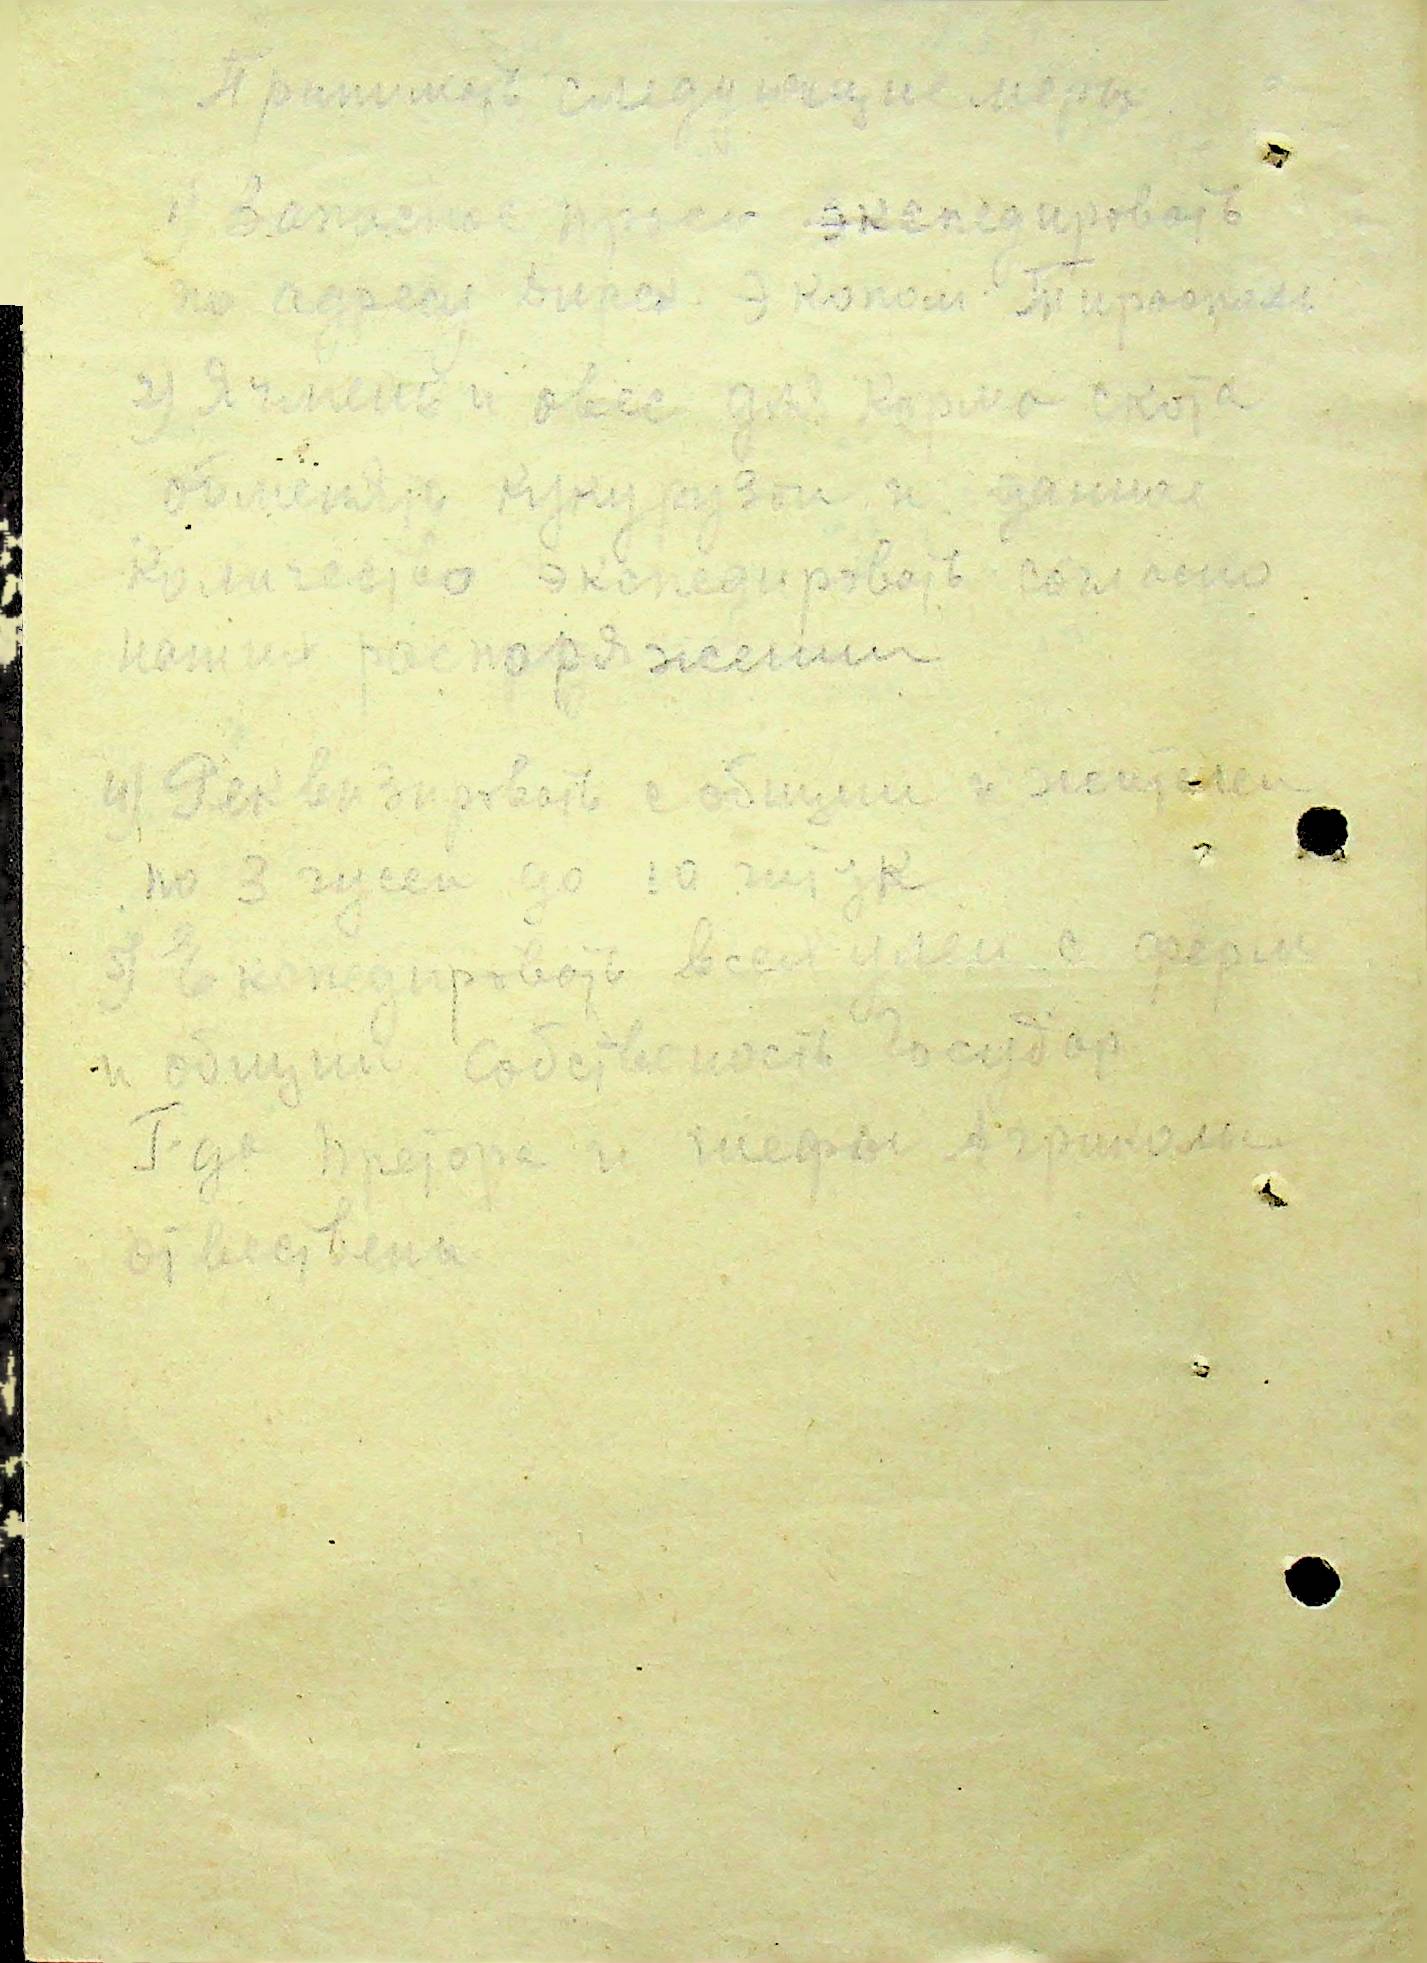 Принимать следующие меры
1) Запасные просы экспедировать
по адресу Дирек. Эконом Тирасполь
2) Ячмень и овес для корма скота
обменять кукурузы и данные
количество экспедировать согласно
наших распоряжении
4) Реквизировать с общин и жителей
по 3 гусеи до 10 штук
5) Експедировать всех улеи с ферм
и общин собственость Государ
Г-да Претора и шефы Агриколы
отвествены